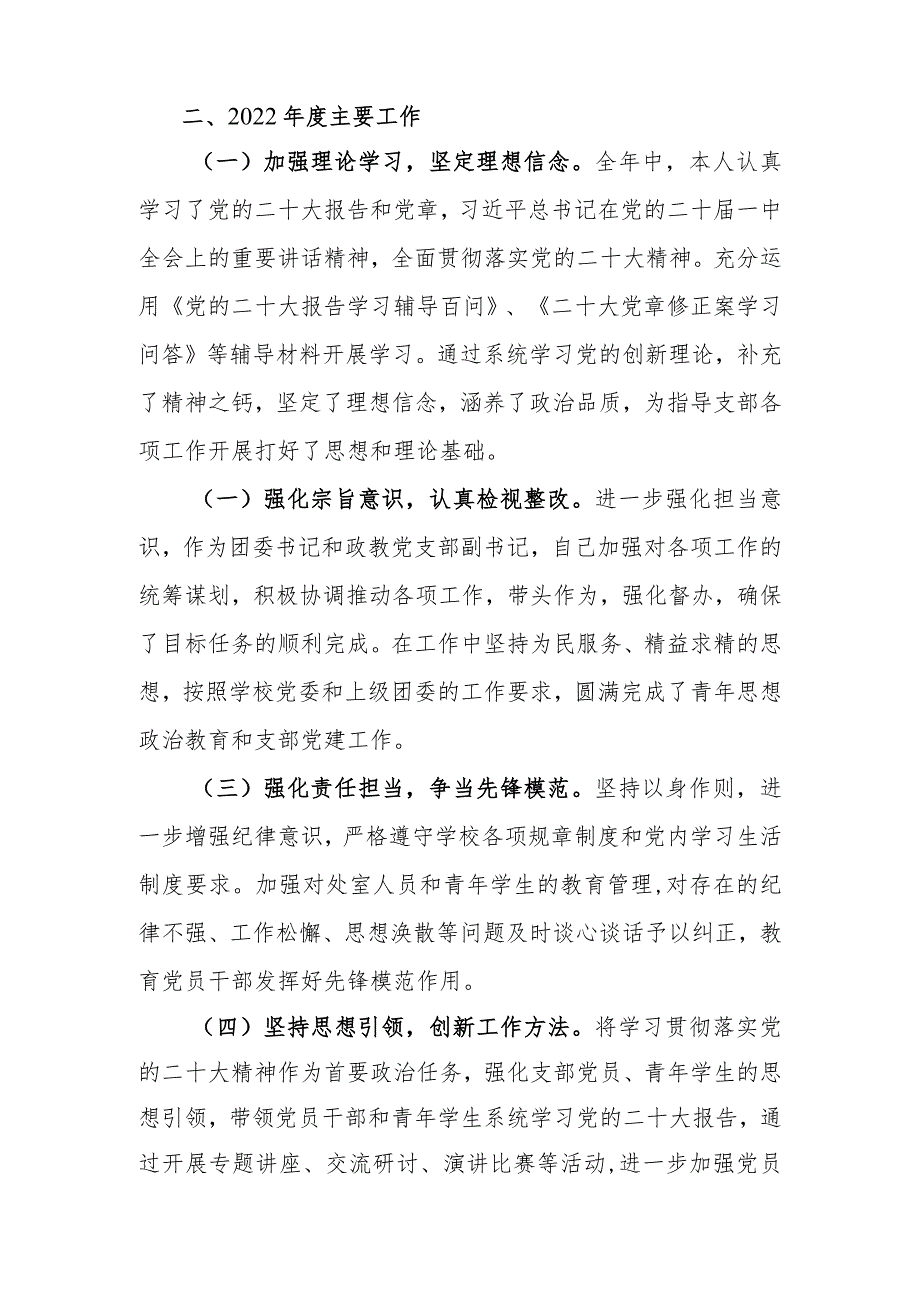 二、2022年度主要工作
（一）加强理论学习，坚定理想信念。全年中，本人认真
学习了党的二十大报告和党章，习近平总书记在党的二十届一中
全会上的重要讲话精神，全面贯彻落实党的二十大精神。充分运
用《党的二十大报告学习辅导百问》、《二十大党章修正案学习
问答》等辅导材料开展学习。通过系统学习党的创新理论，补充
了精神之钙，坚定了理想信念，涵养了政治品质，为指导支部各
项工作开展打好了思想和理论基础。
（一）强化宗旨意识，认真检视整改。进一步强化担当意
识，作为团委书记和政教党支部副书记，自己加强对各项工作的
统筹谋划，积极协调推动各项工作，带头作为，强化督办，确保
了目标任务的顺利完成。在工作中坚持为民服务、精益求精的思
想，按照学校党委和上级团委的工作要求，圆满完成了青年思想
政治教育和支部党建工作。
（三）强化责任担当，争当先锋模范。坚持以身作则，进
一步增强纪律意识，严格遵守学校各项规章制度和党内学习生活
制度要求。加强对处室人员和青年学生的教育管理,对存在的纪
律不强、工作松懈、思想涣散等问题及时谈心谈话予以纠正，教
育党员干部发挥好先锋模范作用。
（四）坚持思想引领，创新工作方法。将学习贯彻落实党
的二十大精神作为首要政治任务，强化支部党员、青年学生的思
想引领，带领党员干部和青年学生系统学习党的二十大报告，通
过开展专题讲座、交流研讨、演讲比赛等活动,进一步加强党员